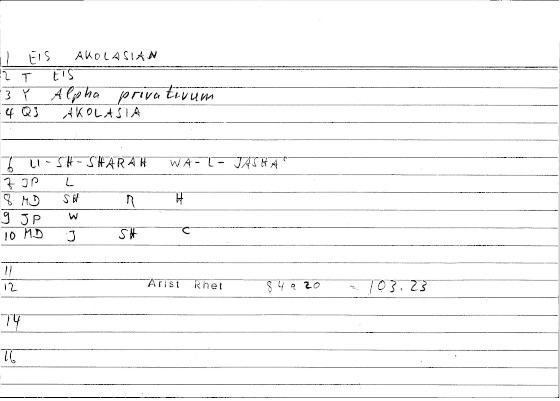 1 EIS AKOLASIAN
2 T EIS
3 Y Alpha privativum
4 QS AKOLASIA
6 LI-SH-SHARAH WA-L-JASHAʿ
7 JP L
8 MD SH R H
9 JP W
10 MD J SH C
11
12 Arist Rhet 84a20 = 103.23
14
16